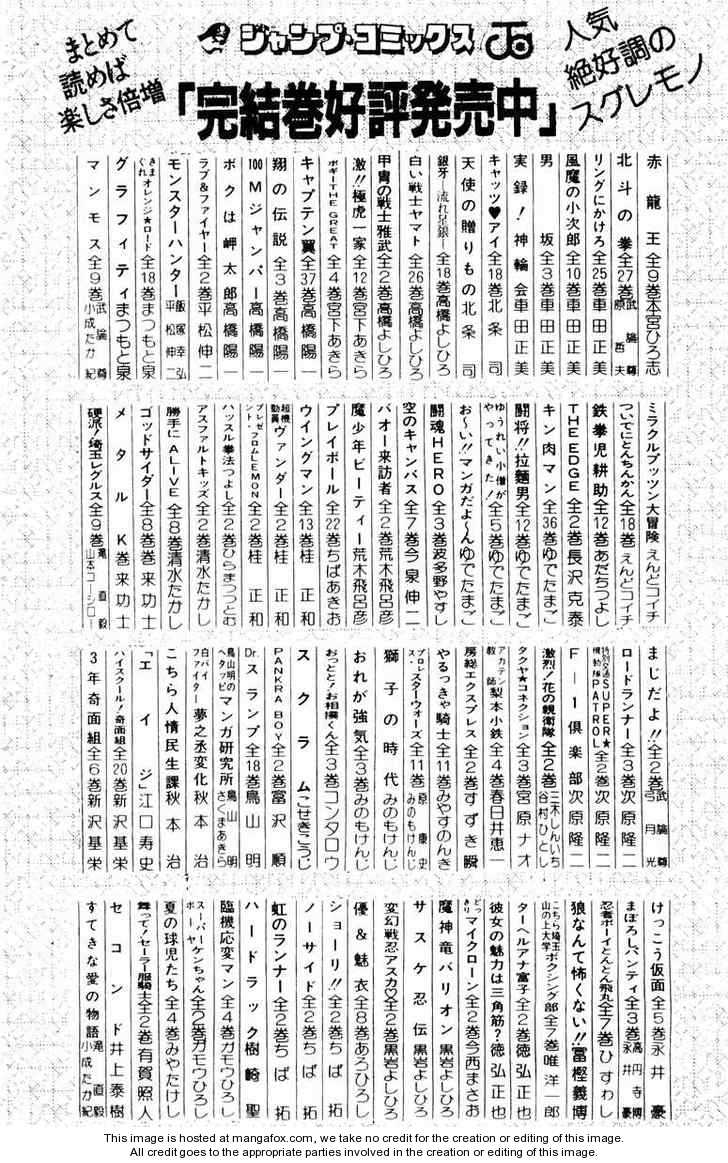 まとめて
読めば
楽しさ倍増
ジャンプ・コミックス
人気
絶好調の
スグレモノ
「完結巻好評発売中」
赤龍王 全9巻 本宮ひろ志
北斗の拳 全27巻 武論尊 原哲夫
リングにかけろ 全25巻 車田正美
風魔の小次郎 全10巻 車田正美
男坂 全3巻 車田正美
実録!神輪会 車田正美
キャッツ♥アイ 全18巻 北条司
天使の贈りもの 北条司
銀牙 流れ星銀 全18巻 高橋よしひろ
白い戦士ヤマト 全26巻 高橋よしひろ
甲冑の戦士雅武 全2巻 高橋よしひろ
激!!極虎一家 全12巻 宮下あきら
ボギーTHE GREAT 全4巻 宮下あきら
キャプテン翼 全37巻 高橋陽一
翔の伝説 全3巻 高橋陽一
100Mジャンパー 高橋陽一
ボクは岬太郎 高橋陽一
ラブ&ファイヤー 全2巻 平松伸二
モンスターハンター 飯塚幸弘 平松伸二
きまぐれオレンジ★ロード 全18巻 まつもと泉
グラフィティ まつもと泉
マンモス 全9巻 武論尊 小成たか紀
ミラクルプッツン大冒険 えんどコイチ
ついでにとんちんかん 全18巻 えんどコイチ
鉄拳児耕助 全12巻 あだちつよし
THE EDGE 全2巻 長沢克泰
キン肉マン 全36巻 ゆでたまご
闘将!!拉麵男 全12巻 ゆでたまご
ゆうれい小僧がやってきた! 全5巻 ゆでたまご
お〜い!!マンガだよ〜ん ゆでたまご
闘魂HERO 全3巻 波多野やすし
空のキャンバス 全7巻 今泉伸二
バオー来訪者 全2巻 荒木飛呂彦
魔少年ビーティー 荒木飛呂彦
プレイボール 全22巻 ちばあきお
ウイングマン 全13巻 桂正和
超機動員ヴァンダー 全2巻 桂正和
プレゼント・フロムLEMON 全2巻 桂正和
ハッスル拳法つよし 全2巻 ひらまつつとむ
アスファルトキッズ 全2巻 清水たかし
勝手にALIVE 全8巻 清水たかし
ゴッドサイダー 全8巻 巻来功士
メタルK 巻来功士
硬派!埼玉レグルス 全9巻 滝直毅 山本コーシロー
まじだよ!! 全2巻 武論尊 弓月光
ロードランナー 全3巻 次原隆二
特別交通機動隊SUPER★PATROL 全2巻 次原隆二
F-1倶楽部 次原隆二
激烈!花の親衛隊 全2巻 三木しんいち 谷村ひとし
タクヤ★コネクション 全3巻 宮原ナオ
アカテン教師梨本小鉄 全4巻 春日井恵一
房総エクスプレス 全2巻 すずき瞬
やるっきゃ騎士 全11巻 みやすのんき
プロレス・スターウォーズ 全11巻 原康史 みのもけんじ
獅子の時代 みのもけんじ
おれが強気 全3巻 みのもけんじ
おっとと!お相撲くん 全3巻 コンタロウ
スクラム こせきこうじ
PANKRA BOY 全2巻 富沢順
Dr.スランプ 全18巻 鳥山明
鳥山明のヘタッピマンガ研究所 鳥山明 さくまあきら
白バイファイター夢之丞変化 秋本治
こちら人情民生課 秋本治
「エイジ」 江口寿史
ハイスクール!奇面組 全20巻 新沢基栄
3年奇面組 全6巻 新沢基栄
けっこう仮面 全5巻 永井豪
まぼろしパンティ 全3巻 高円寺博 永井豪
忍者ボーイとんとん飛丸 全7巻 ひすわし
狼なんて怖くない!! 冨樫義博
こちら埼玉山の上大学ボクシング部 全7巻 唯洋一郎
ターヘルアナ富子 全2巻 徳弘正也
彼女の魅力は三角筋? 徳弘正也
どっきりマイクローン 全2巻 今西まさお
魔神竜バリオン 黒岩よしひろ
サスケ忍伝 黒岩よしひろ
変幻戦忍アスカ 全2巻 黒岩よしひろ
優&魅衣 全8巻 あろひろし
ショーリ!! 全2巻 ちば拓
ノーサイド 全2巻 ちば拓
虹のランナー 全2巻 ちば拓
ハードラック 樹崎聖
臨機応変マン 全4巻 ガモウひろし
スーパーボーヤけんちゃん 全2巻 ガモウひろし
夏の球児たち 全4巻 みやたけし
舞って!セーラー服騎士 全2巻 有賀照人
セコンド 井上泰樹
すてきな愛の物語 滝直毅 小成たか紀
This image is hosted at mangafox.com, we take no credit for the creation or editing of this image.
All credit goes to the appropriate parties involved in the creation or editing of this image.